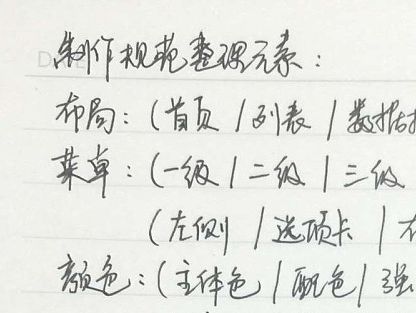 制作规范整理元素：
布局：(首页 | 列表 | 数据
菜单：(一级 | 二级 | 三级
(左侧 | 选项卡 |
颜色：(主体色 | 配色 | 强